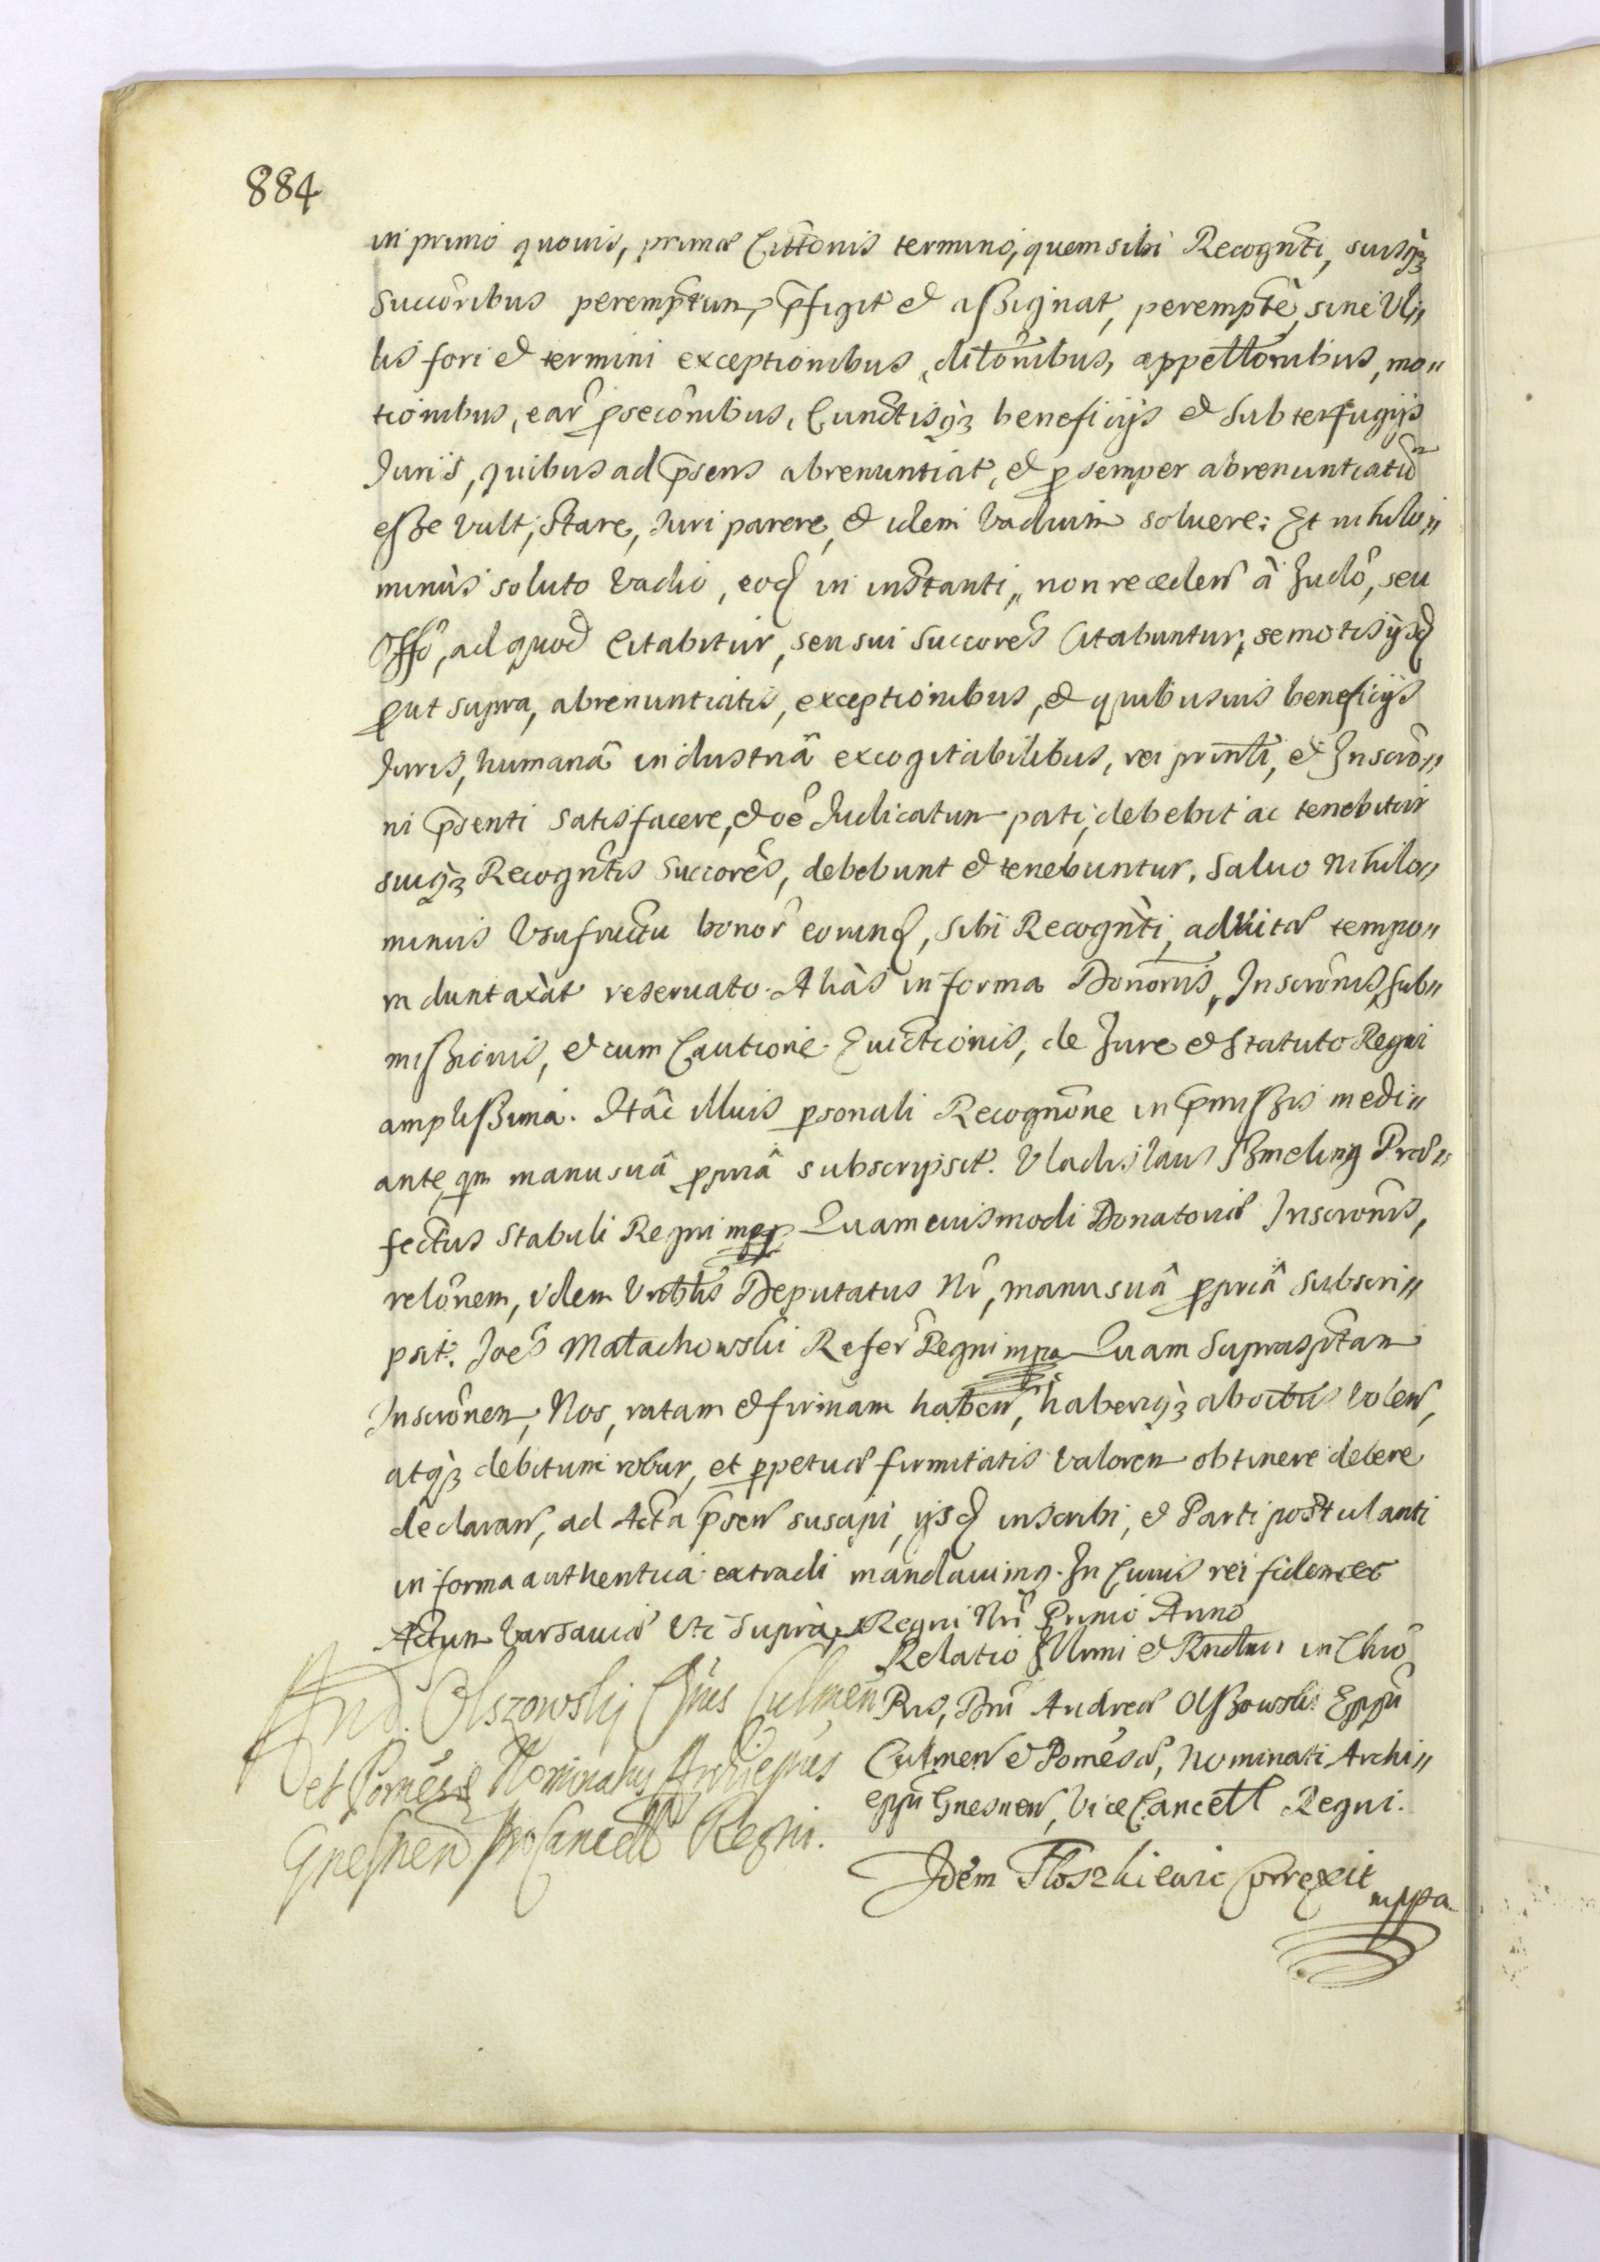 884
in primo quovis, primæ Cittōnis termino, quem sibi Recognt̄i, suisq3
Succōribus peremptum, p̄figit et assignat, peremptē, sine Ul„
lis fori et termini exceptionibus, dilōnibus, appellōnibus, mo„
tionibus, ear̄ psecōnibus, Cunctisq3 beneficijs et Subterfugijs
Juris, quibus ad p̄sens abrenuntiat, et p semper abrenuntiatū
esse vult, Stare, Juri parere, et idem Vadium soluere: Et nihilo„
minùs soluto Vadio, eod in instanti, non receden̄ à Judō, seu
Offō, ad quod Citabitur, seu sui Succorēs Citabuntur, semotis ijsd
put supra, abrenuntiatis, exceptionibus, et quibusuis beneficijs
Juris, humanâ industriâ excogitabilibus, rei prin̄li, et Inscrō„
ni p̄senti satisfacere, et oē Judicatum pati, debebit ac tenebitur
suiq3 Recognt̄is Succorēs, debebunt et tenebuntur. Saluo nihilo„
minus Usufructu bonor̄ eorund, sibi Recognt̄i, ad Vitæ tempo„
ra duntaxàt reseruato. Aliàs in forma Donōnis, Inscrōnis, sub„
missionis, et cum Cautione Euictionis, de Jure et Statuto Regni
amplissima. Hāc illius psonali Recognōne in p̄missis medi„
ante, qm manu suâ ppriâ subscripsit. Vladislaus Szmeling Præ„
fectus Stabuli Regni mpp Quam euismodi Donatoriæ Inscrōnis,
relōnem, idem Urōblis Deputatus Nr̄, manu suâ ppriâ Subscri„
psit. Joēs Małachowski Refer̄ Regni mpa Quam Suprasptam
Inscrōnem, Nos, ratam et firmam haben̄, haberiq3 ab oībus Volen̄,
atq3 debitum robur, et ppetuæ firmitatis Valorem obtinere debere
declaran̄, ad Acta p̄sen̄ suscipi, ijsd inscribi, et Parti postulanti
in forma authentica extradi mandauimus. In Cuius rei fidem etc
Actum Varsaviæ Ut Suprà, Regni Nr̄i Primo Anno
Relatio Illmi et Rndmi in Chrō
Pris, Dni Andreæ Olszowski Eppi
Culmen̄ et Pomēsæ, Nominati Archi„
eppi Gnesnen̄, Vice Cancell Regni.
And. Olszowskij Eppus Culmen̄
et Pomēsæ Nominatus Archieppus
Gnesnen̄ ProCancell Regni.
Idem Floszkiewic Correxit
mppa